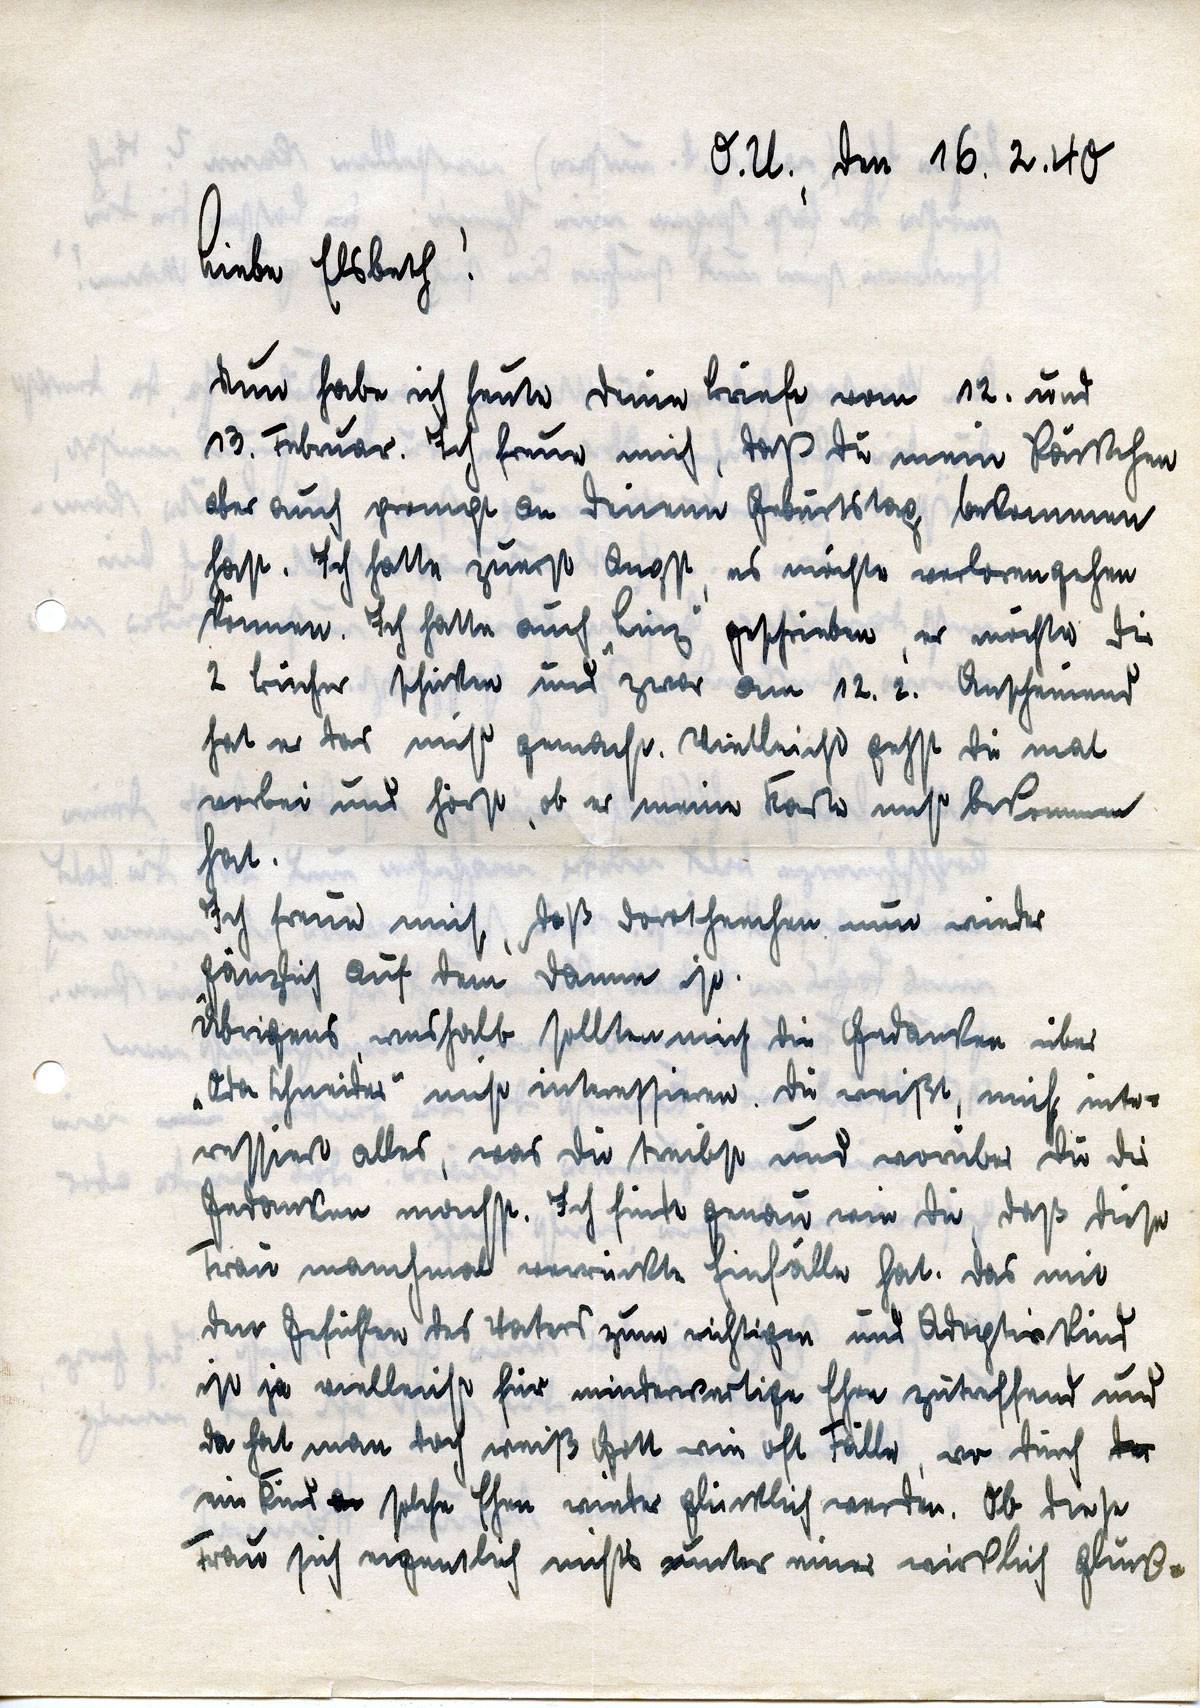 O.U., den 16.2.40
Liebe Elsbeth!
Nun habe ich heute Deine Briefe vom 12. und
13. Februar. Ich freue mich, daß Du mein Päckchen
aber auch prompt an Deinem Geburtstag bekommen
hast. Ich hatte zuerst Angst, es möchte verlorengehen
können. Ich hatte auch „Linz" geschrieben, er möchte Dir
2 Bücher schicken und zwar am 12.2. Anscheinend
hat er das nicht gemacht. Vielleicht gehst Du mal
vorbei und hörst, ob er meine Karte nicht bekommen
hat.
Ich freue mich, daß Dorothenchen nun wieder
gänzlich auf dem Damm ist.
Übrigens, weshalb sollten mich die Gedanken über
„Oda Schneider" nicht interessieren. Du weißt, mich inte-
ressiert alles, was Du treibst und worüber Du Dir
Gedanken machst. Ich finde genau wie Du, daß diese
Frau manchmal verrückte Einfälle hat. Das mit
den Gefühlen des Vaters zum richtigen und Adoptivkind
ist ja vielleicht für minderwertige Ehen zutreffend und
da hat man doch weiß Gott wie oft Fälle, wo durch
ein Kind solche Ehen wieder glücklich werden. Ob diese
Frau sich eigentlich nichts unter einer wirklich glück-